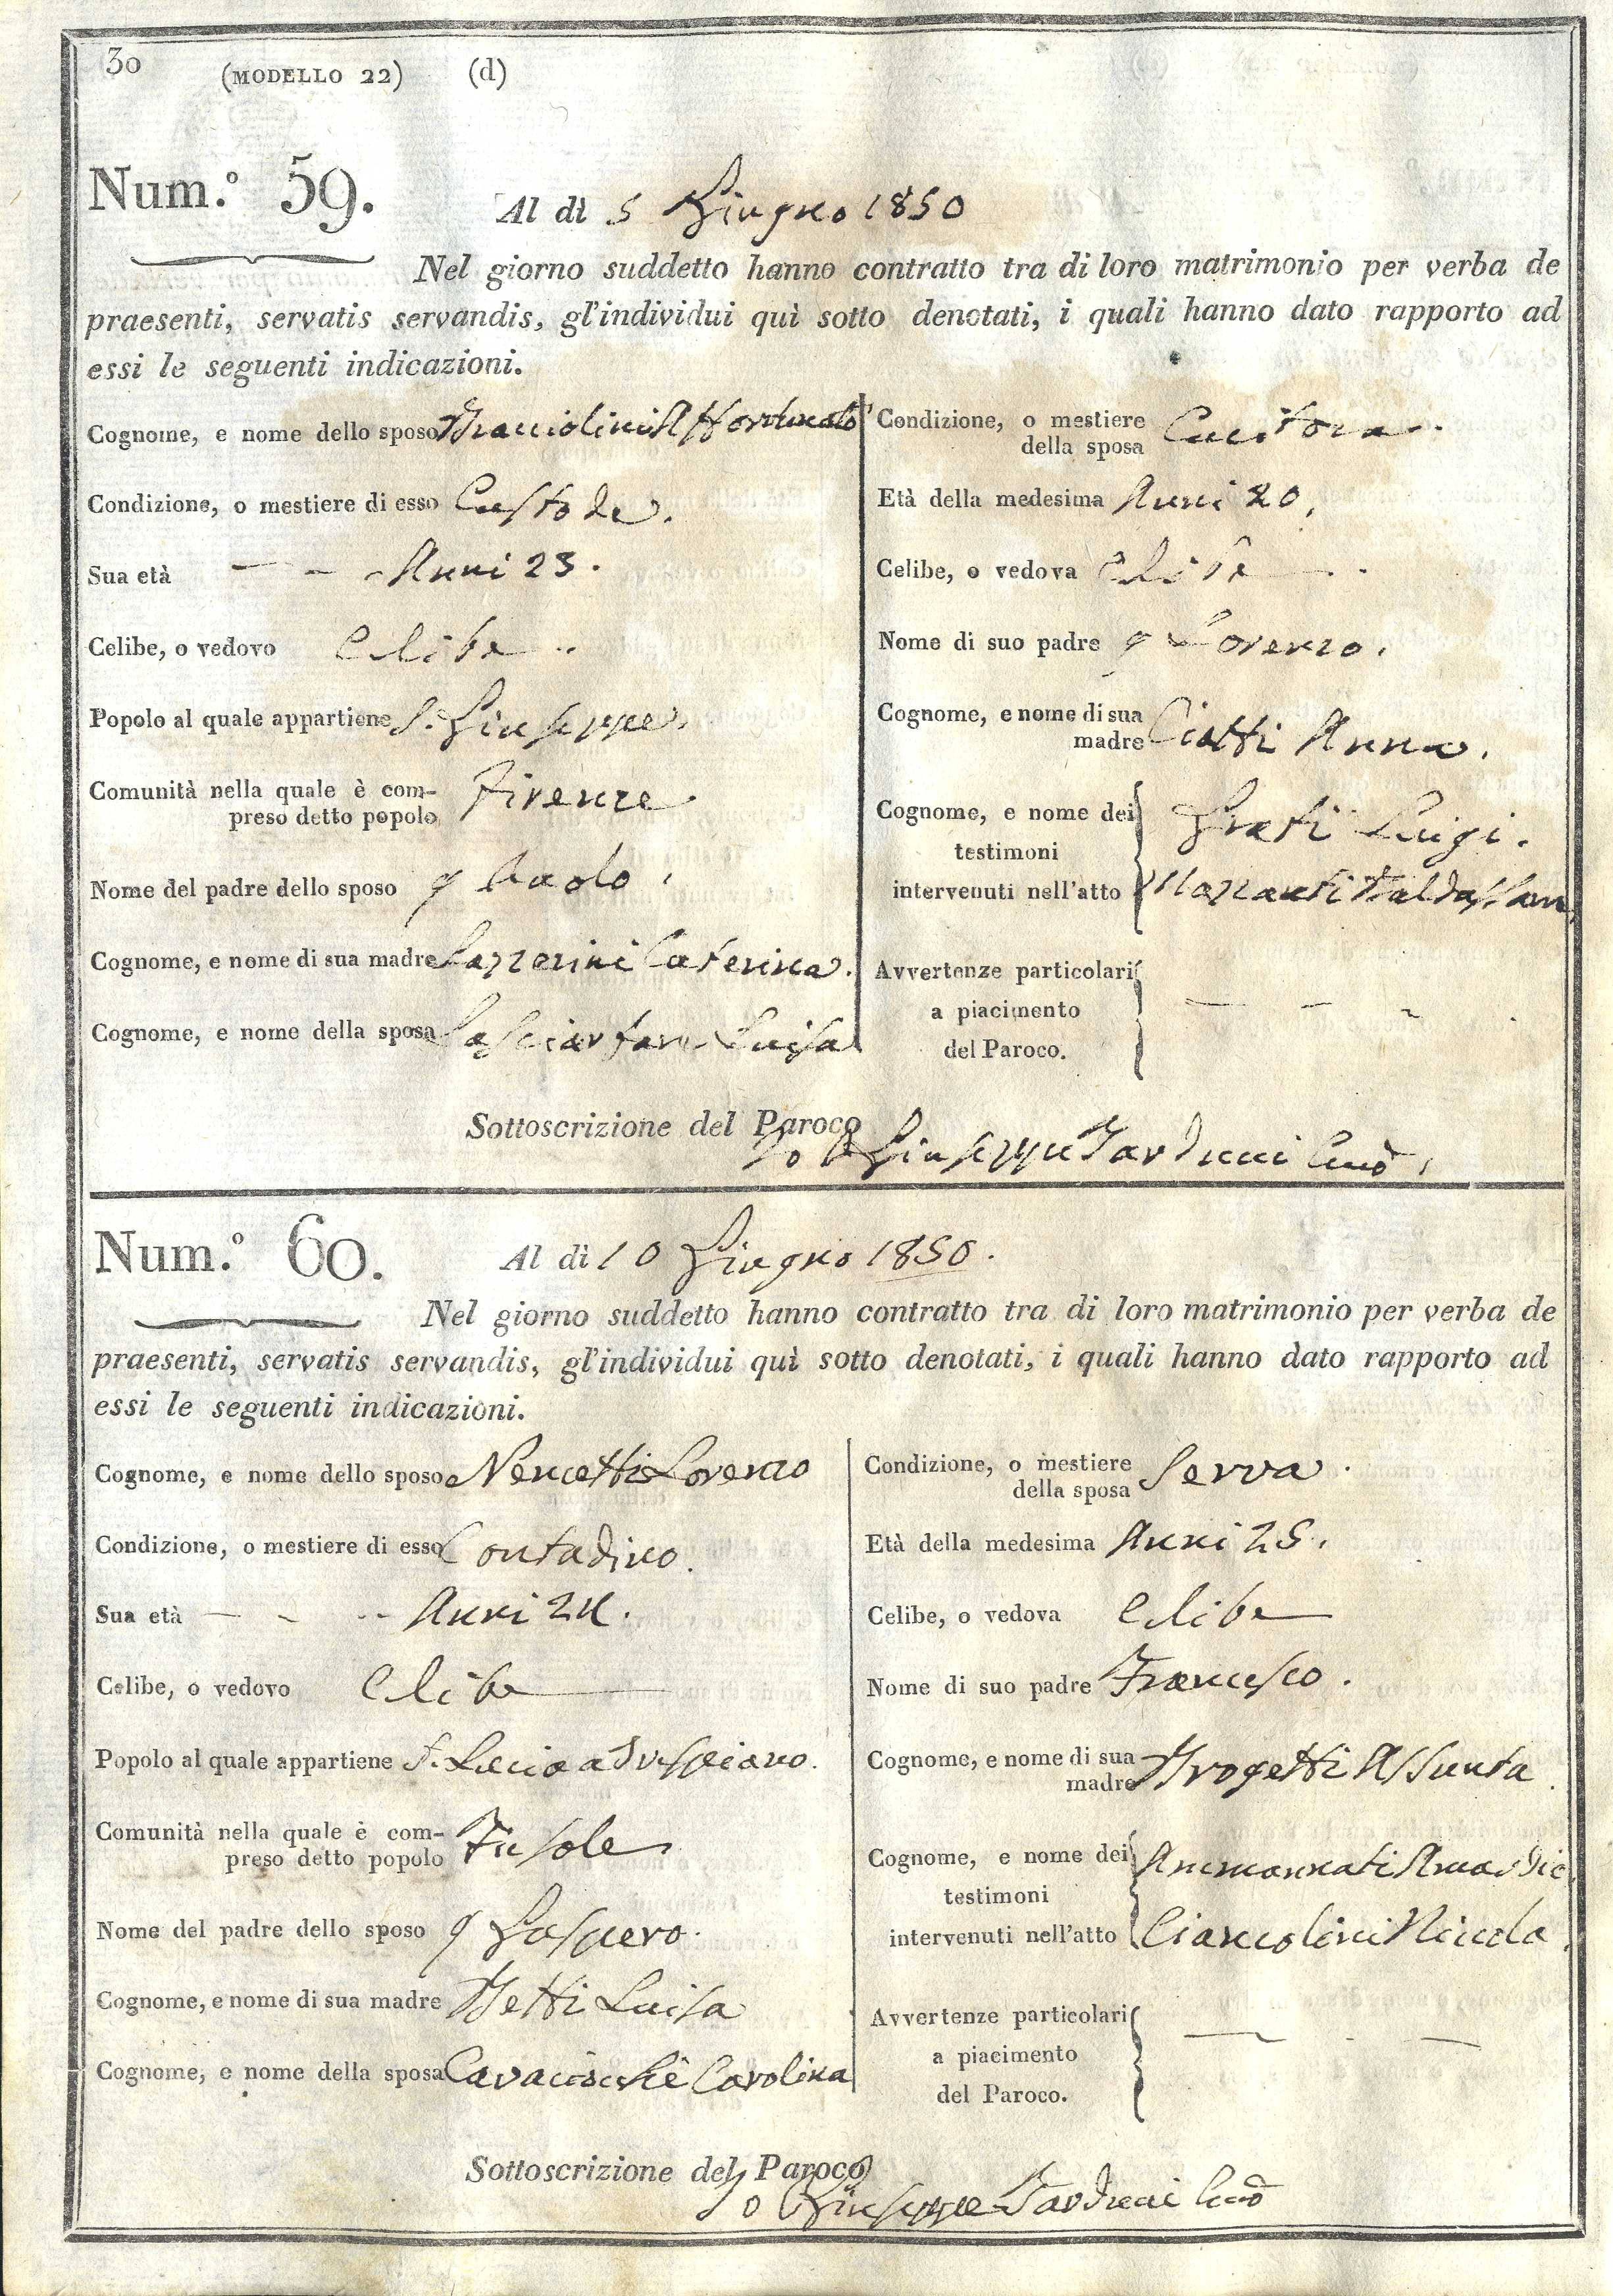 30 (MODELLO 22) (d)
Num.º 59. Al dì 5 Giugno 1850
Nel giorno suddetto hanno contratto tra di loro matrimonio per verba de
praesenti, servatis servandis, gl'individui quì sotto denotati, i quali hanno dato rapporto ad
essi le seguenti indicazioni.
Cognome, e nome dello sposo Bracciolini Affortunato
Condizione, o mestiere di esso Custode.
Sua età - - - Anni 23.
Celibe, o vedovo Celibe
Popolo al quale appartiene S. Giuseppe.
Comunità nella quale è com-
preso detto popolo Firenze
Nome del padre dello sposo q Paolo.
Cognome, e nome di sua madre Lazzerini Caterina.
Cognome, e nome della sposa Luisa
Condizione, o mestiere
della sposa Cucitora
Età della medesima Anni 20.
Celibe, o vedova Celibe
Nome di suo padre q Lorenzo.
Cognome, e nome di sua
madre Ciatti Anna.
Cognome, e nome dei Grati Luigi.
testimoni
intervenuti nell'atto Mazzanti
Avvertenze particolari
a piacimento - - -
del Paroco.
Sottoscrizione del Paroco
Io P Giuseppe Tarducci Curo
Num.º 60. Al dì 10 Giugno 1850.
Nel giorno suddetto hanno contratto tra di loro matrimonio per verba de
praesenti, servatis servandis, gl'individui quì sotto denotati, i quali hanno dato rapporto ad
essi le seguenti indicazioni.
Cognome, e nome dello sposo Nencetti Lorenzo
Condizione, o mestiere di esso Contadino.
Sua età - - -- Anni 24.
Celibe, o vedovo Celibe
Popolo al quale appartiene S. Lucia a Trespiano.
Comunità nella quale è com-
preso detto popolo Fiesole
Nome del padre dello sposo q Gaspero.
Cognome, e nome di sua madre Betti Luisa
Cognome, e nome della sposa Cavaciocchi Carolina
Condizione, o mestiere
della sposa Serva.
Età della medesima Anni 25.
Celibe, o vedova Celibe
Nome di suo padre Francesco.
Cognome, e nome di sua
madre Brogetti Assunta
Cognome, e nome dei Ammannati
testimoni
intervenuti nell'atto Ciancolini Niccola
Avvertenze particolari
a piacimento - - -
del Paroco.
Sottoscrizione del Paroco
Io P Giuseppe Tarducci Curo